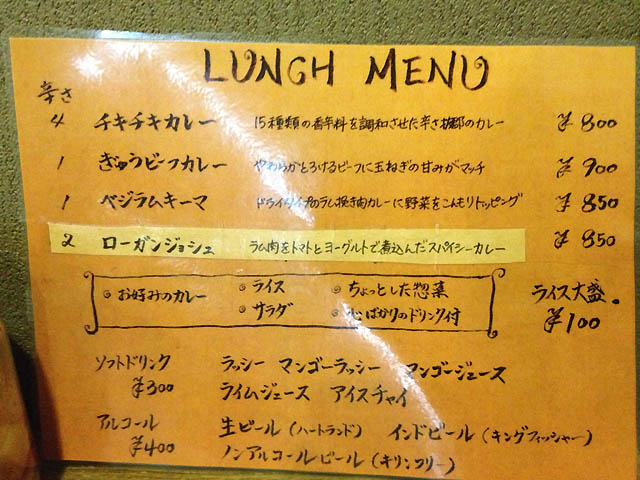 LUNCH MENU
辛さ
4 チキチキカレー 15種類の香辛料を調和させた辛さ抜群のカレー ¥800
1 ぎゅうビーフカレー やわらかとろけるビーフに玉ねぎの甘みがマッチ ¥900
1 ベジラムキーマ ドライタイプのラム挽き肉カレーに野菜をこんもりトッピング ¥850
2 ローガンジョシュ ラム肉をトマトとヨーグルトで煮込んだスパイシーカレー ¥850
お好みのカレー ライス ちょっとした惣菜 ライス大盛
サラダ 心ばかりのドリンク付 ¥100
ソフトドリンク ラッシー マンゴーラッシー マンゴージュース
¥300 ライムジュース アイスチャイ
アルコール 生ビール(ハートランド) インドビール(キングフィッシャー)
¥400 ノンアルコールビール(キリンフリー)